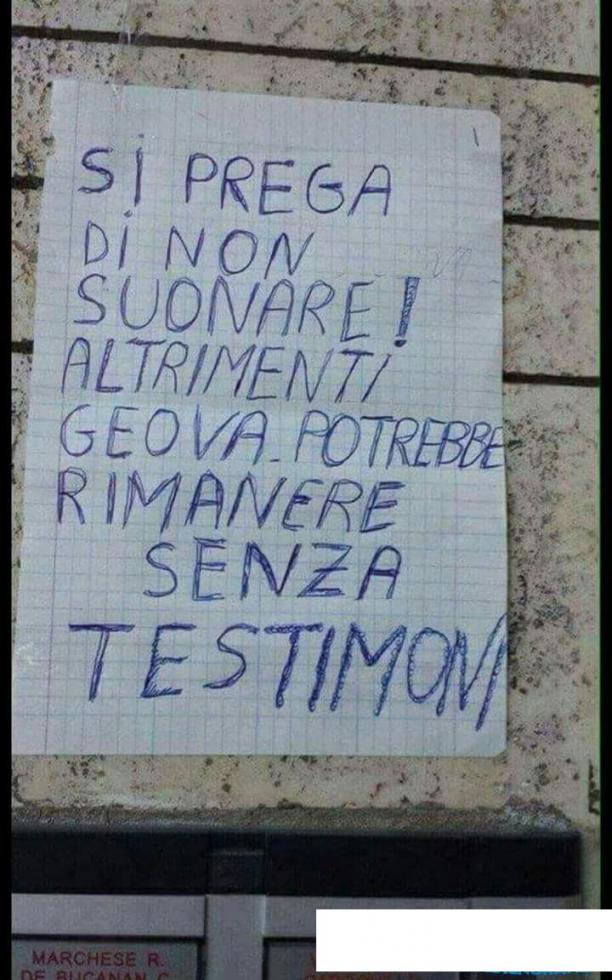 Si PREGA
Di NON
SUONARE!
ALTRIMENTi
GEOVA. POTREBBE
RIMANERE
SENZA
TESTIMONI
MARCHESE R.
DE BUCANAN C.